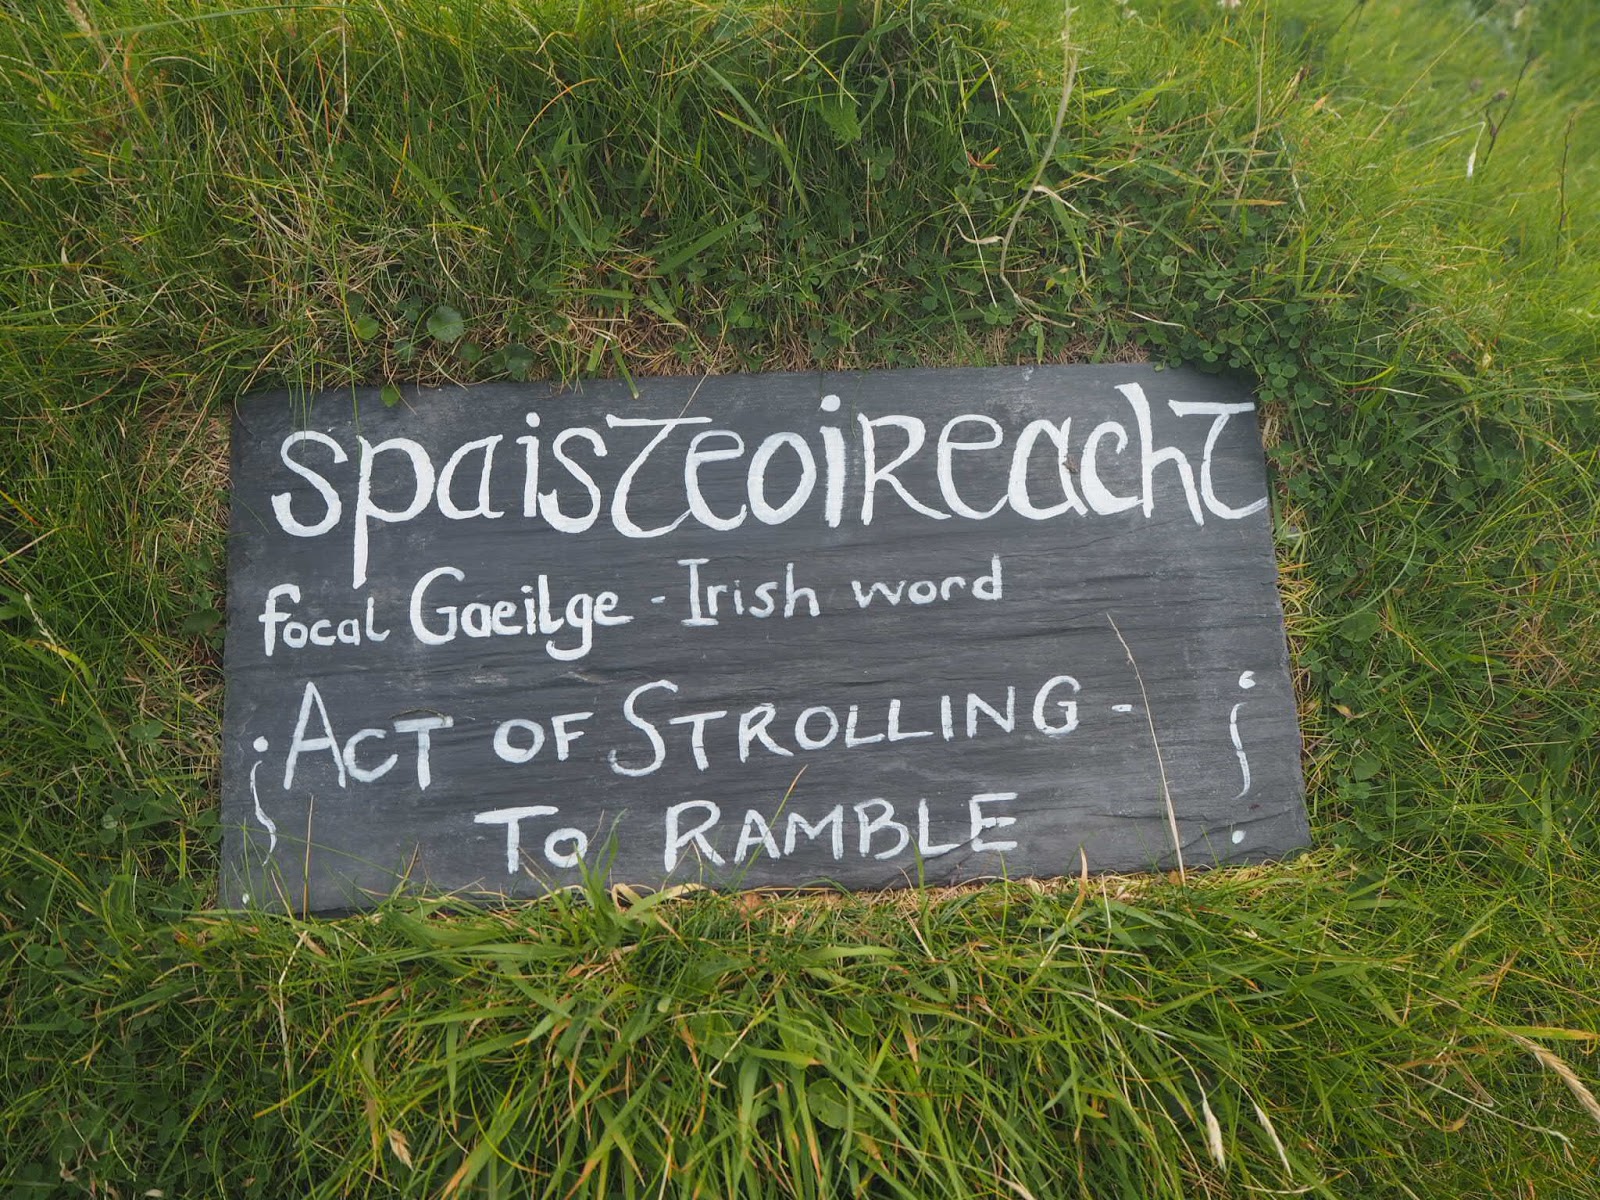 spaisteoireacht
focal Gaeilge - Irish word
Act of Strolling -
To Ramble